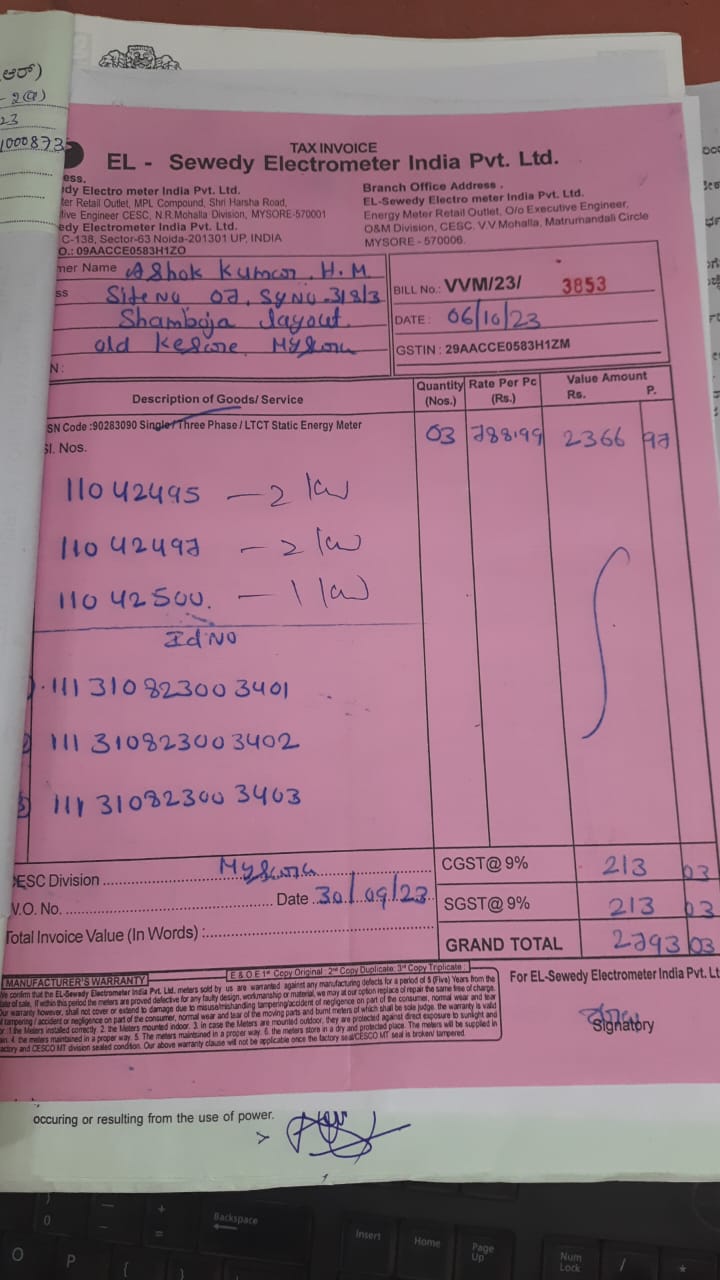 ಆರ್)
- 2(a)
23
1000873
TAX INVOICE
EL - Sewedy Electrometer India Pvt. Ltd.
ess.
dy Electro meter India Pvt. Ltd.
ter Retail Outlet, MPL Compound, Shri Harsha Road,
tive Engineer CESC, N.R.Mohalla Division, MYSORE-570001
edy Electrometer India Pvt. Ltd.
C-138, Sector-63 Noida-201301 UP, INDIA
O.: 09AACCE0583H1ZO
Branch Office Address .
EL-Sewedy Electro meter India Pvt. Ltd.
Energy Meter Retail Outlet, O/o Executive Engineer,
O&M Division, CESC. V.V.Mohalla, Matrumandali Circle
MYSORE - 570006.
mer Name Ashok Kumar. H.M
ss Site No 07, Sy No. 318/3
Shamboja layout.
old Kesare. Mysuru
N :
BILL No.: VVM/23/ 3853
DATE : 06/10/23
GSTIN : 29AACCE0583H1ZM
Description of Goods/ Service Quantity (Nos.) Rate Per Pc (Rs.) Value Amount Rs. P.
SN Code :90283090 Single/Three Phase / LTCT Static Energy Meter 03 788.99 2366 97
Sl. Nos.
11042495 - 2 kw
11042497 - 2 kw
11042500. - 1 kw
Id No
1) 111310823003401
2) 111310823003402
3) 111310823003403
CESC Division Mysuru CGST@ 9% 213 03
W.O. No. Date 30/09/23 SGST@ 9% 213 03
Total Invoice Value (In Words) : GRAND TOTAL 2793 03
E & O E 1st Copy Original : 2nd Copy Duplicate: 3rd Copy Triplicate :
MANUFACTURER'S WARRANTY
We confirm that the EL-Sewedy Electrometer India Pvt. Ltd. meters sold by us are warranted against any manufacturing defects for a period of 5 (Five) Years from the
date of sale. If within this period the meters are proved defective for any faulty design, workmanship or material, we may at our option replace of repair the same free of charge.
Our warranty however, shall not cover or extend to damage due to misuse/mishanding tampering/accident of negligence on part of the consumer, normal wear and tear
f tampering / accident or negligence on part of the consumer, normal wear and tear of the moving parts and burnt meters of which shall be sole judge. the warranty is valid
r : 1.the Meters installed correctly. 2. the Meters mounted indoor. 3. in case the Meters are mounted outdoor, they are protected against direct exposure to sunlight and
an. 4. the meters maintained in a proper way. 5. The meters maintained in a proper way. 6. the meters store in a dry and protected place. The meters will be supplied in
actory and CESCO MT division sealed condition. Our above warranty clause will not be applicable once the factory seal/CESCO MT seal is broken/ tampered.
For EL-Sewedy Electrometer India Pvt. Lt
Signatory
occuring or resulting from the use of power.
Backspace
Insert
Home
Page Up
Num Lock
0
O
P